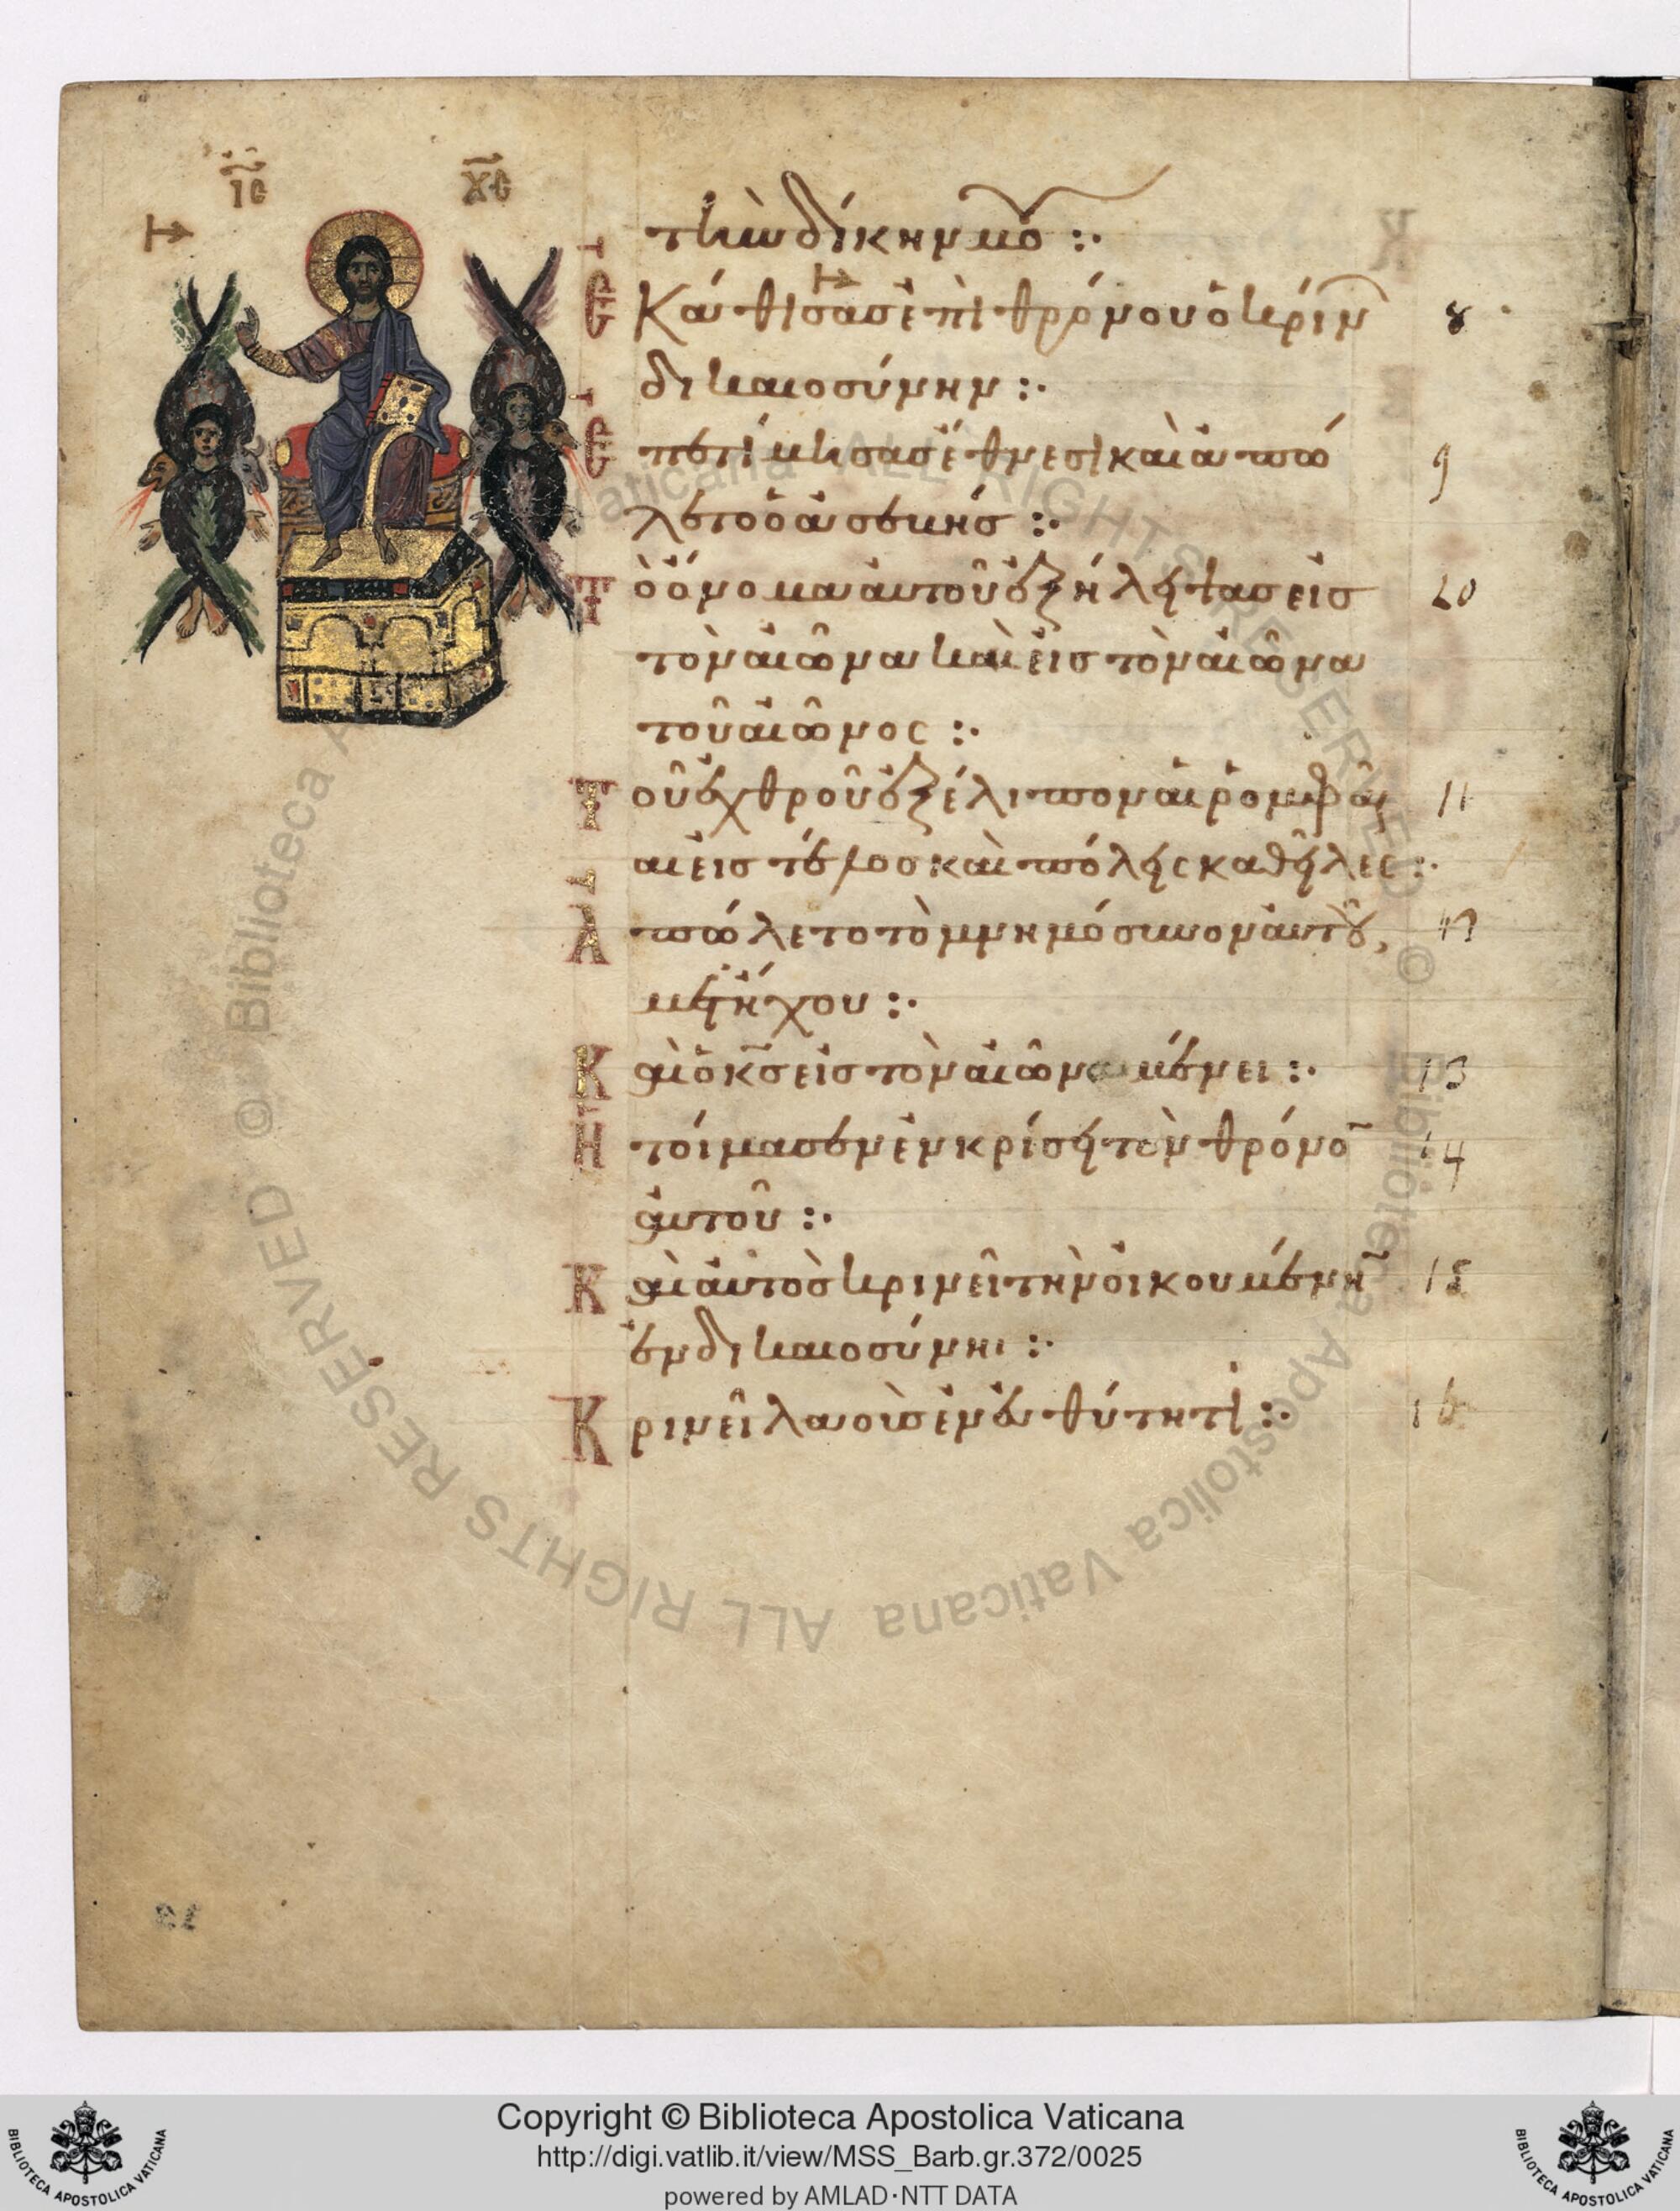 ΙϹ ΧϹ
τὴν δίκην μου :·
Ἐκάθισας ἐπὶ θρόνου ὁ κρίνων 8
δικαιοσύνην :·
Ἐπετίμησας ἔθνεσι καὶ ἀπώ 9
λετο ὁ ἀσεβὴς :·
Τὸ ὄνομα αὐτοῦ ἐξήλειψας εἰς 10
τὸν αἰῶνα καὶ εἰς τὸν αἰῶνα
τοῦ αἰῶνος :·
Τοῦ ἐχθροῦ ἐξέλιπον αἱ ῥομφαῖ 11
αι εἰς τέλος καὶ πόλεις καθεῖλες :·
Ἀπώλετο τὸ μνημόσυνον αὐτοῦ
μετ' ἤχου :·
Καὶ ὁ κ̅ς̅ εἰς τὸν αἰῶνα μένει :· 13
Ἡτοίμασεν ἐν κρίσει τὸν θρόνον 14
αὐτοῦ :·
Καὶ αὐτὸς κρινεῖ τὴν οἰκουμένην 15
ἐν δικαιοσύνηι :·
Κρινεῖ λαοὺς ἐν εὐθύτητι :· 16
© Biblioteca Apostolica Vaticana ALL RIGHTS RESERVED
Copyright © Biblioteca Apostolica Vaticana
http://digi.vatlib.it/view/MSS_Barb.gr.372/0025
powered by AMLAD·NTT DATA
BIBLIOTECA APOSTOLICA VATICANA
BIBLIOTECA APOSTOLICA VATICANA